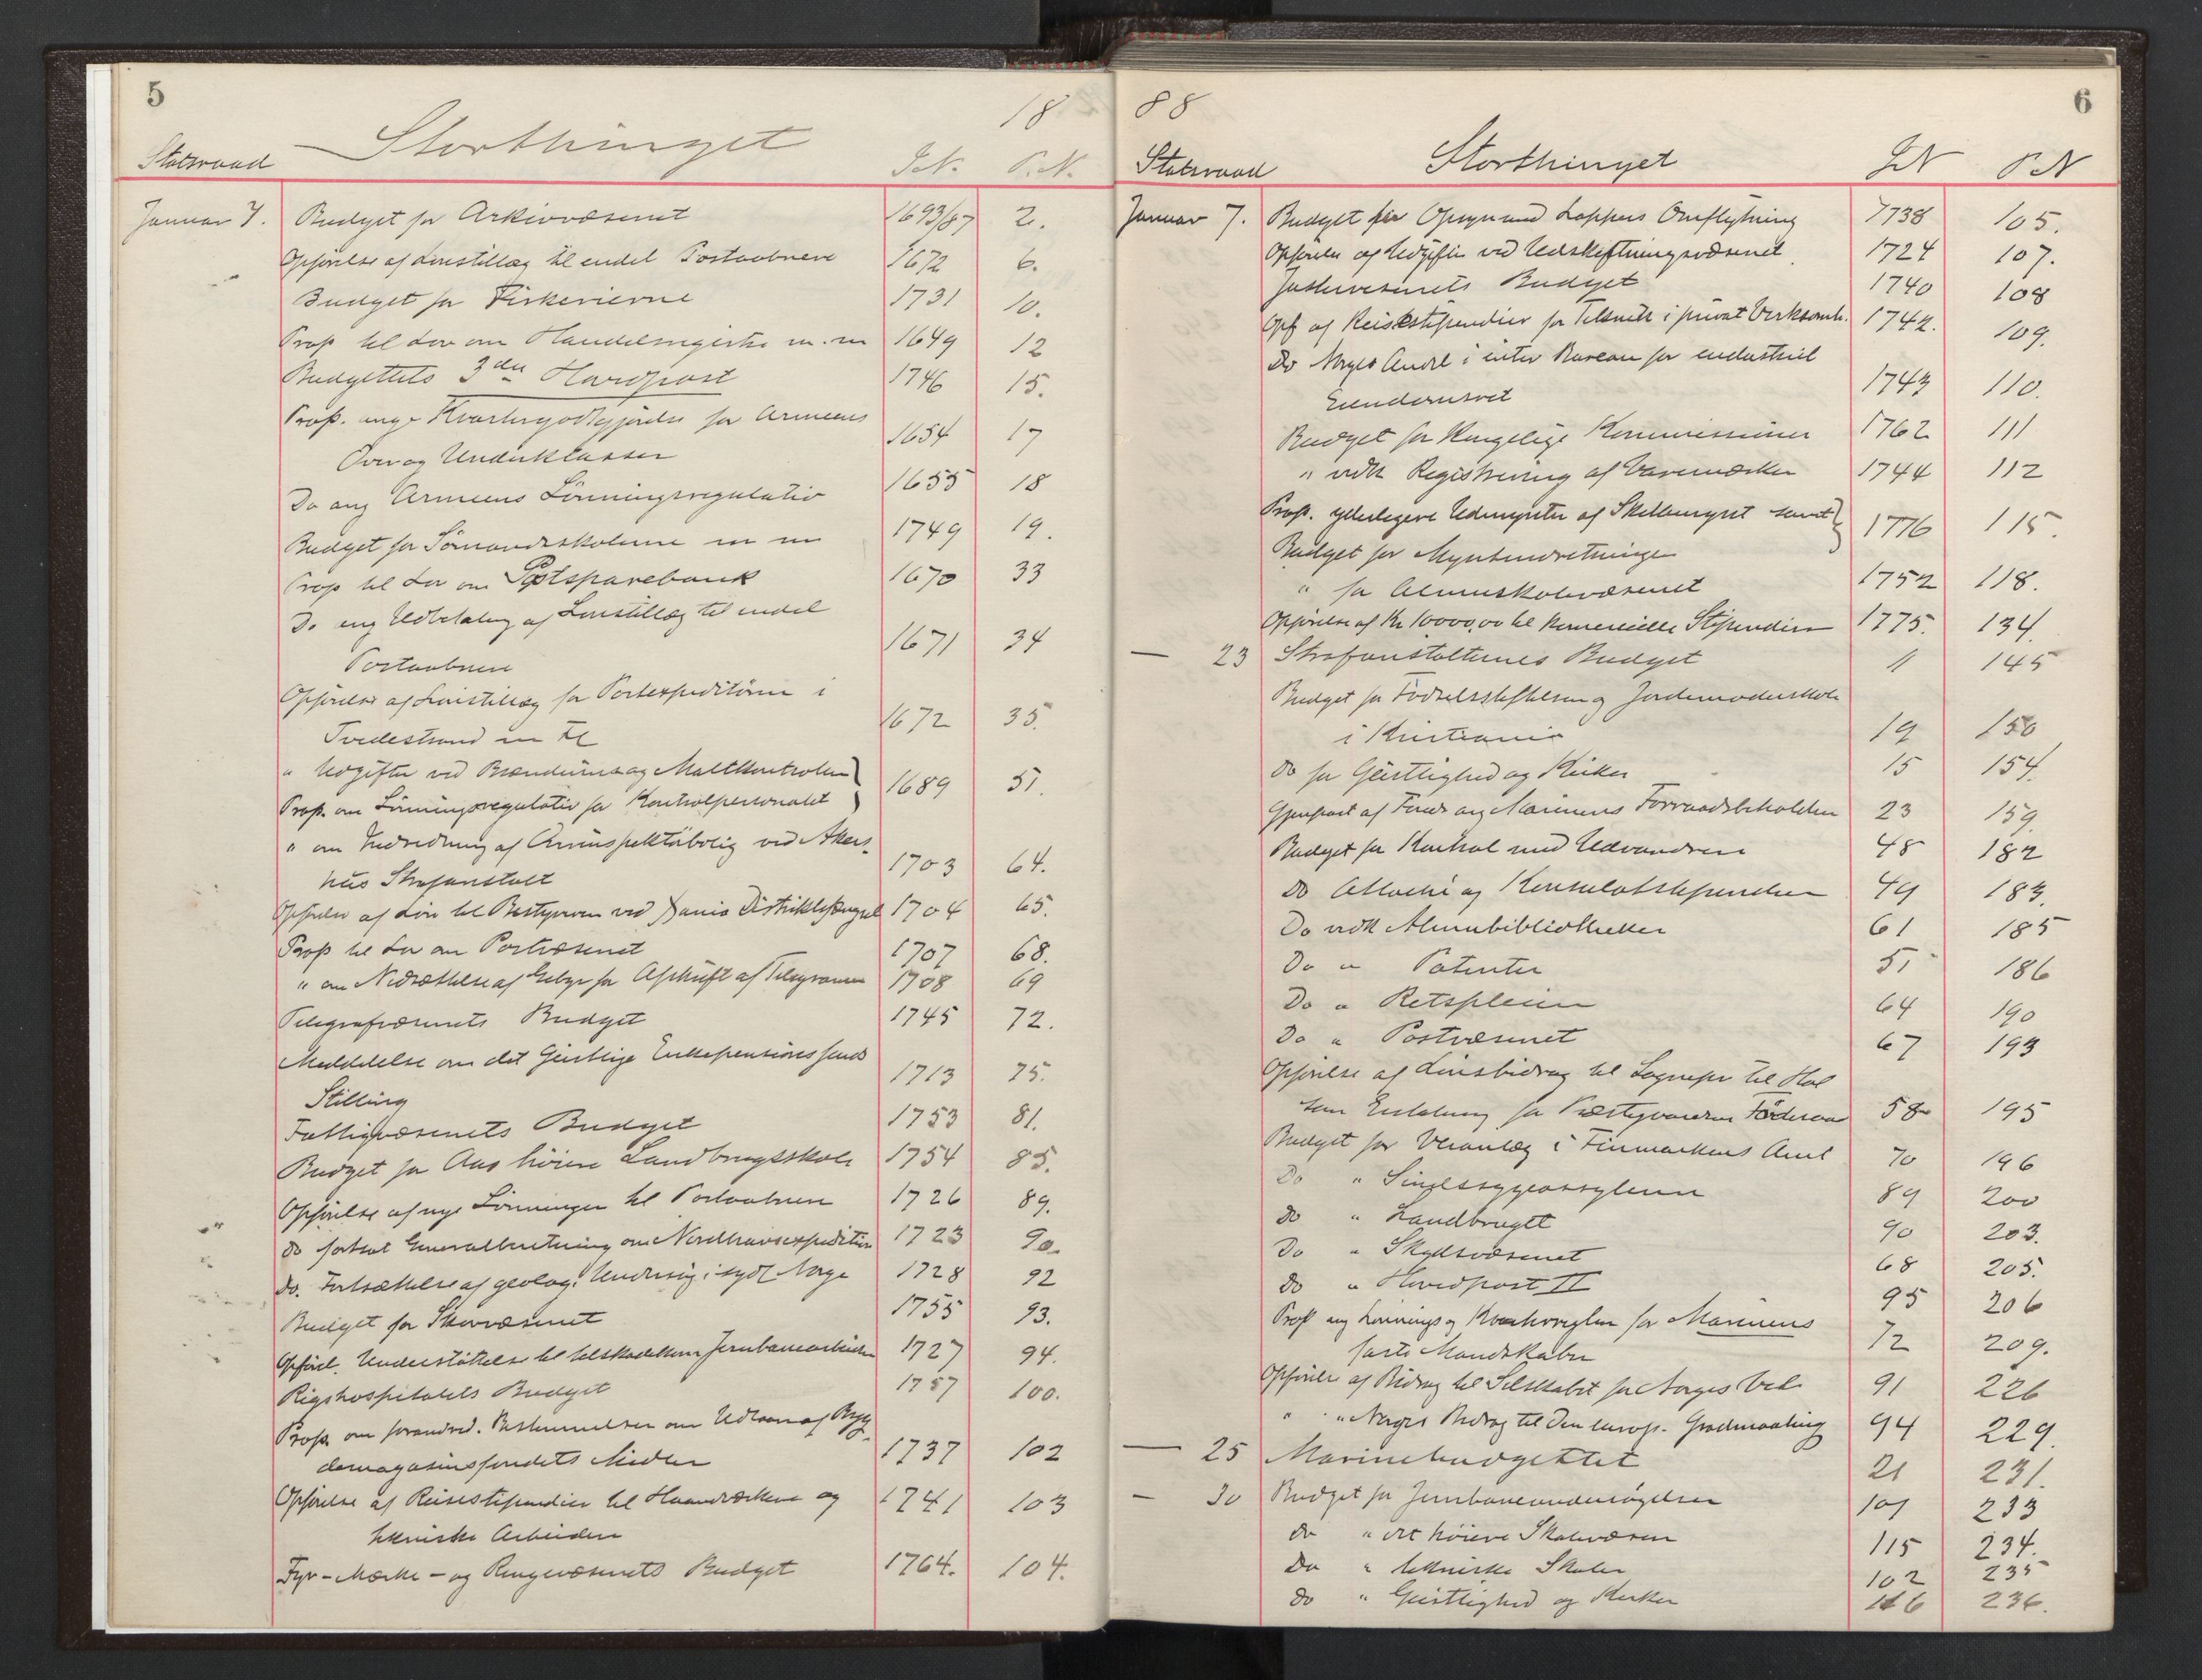 5
18
Storthinget
Statsraad
J.N.
P.N.
Januar 7. Budget for Arkivvæsenet 1693/87 2.
Opførelse af Lønstillæg til endel Postaabnere 1672 6.
Budget for Fiskerierne 1731 10.
Prop til Lov om Handelsregistre m. m 1649 12
Budgettets 3die Hovedpost 1746 15.
Prop. ang. Kvartergodtgjørelse for Armeens
Over og Underklasser 1654 17
Do ang Armeens Lønningsregulativ 1655 18
Budget for Sømandsskolerne m m 1749 19.
Prop til Lov om Postsparebank 1670 33
Do ang Udbetaling af Lønstillæg til endel
Postaabnere 1671 34
Opførelse af Lønstillæg for Postexpeditøren i
Tvedestrand m fl 1672 35.
" Udgifter ved Brændevins og Maltkontrolen
Prop. om Lønningsregulativ for Kontrolpersonalet 1689 51.
" om Indredning af Overinspektørbolig ved Akers-
hus Strafanstalt 1703 64.
Opførelse af Løn til Bestyreren ved Hamar Distriktsfængsel 1704 65.
Prop til Lov om Postvæsenet 1707 68.
" om Nedsættelse af Gebyr for Afskrift af Telegrammer 1708 69
Telegrafvæsenets Budget 1745 72.
Meddelelse om det Geistlige Enkepensionsfonds
Stilling 1713 75.
Fattigvæsenets Budget 1753 81.
Budget for Aas høiere Landbrugsskole 1754 85.
Opførelse af nye Lønninger til Postaabnere 1726 89.
do fortsat Generalberetning om Nordhavsexpedition 1723 90.
Do. Fortsættelse af geolog. Undersøg. i sydl Norge 1728 92
Budget for Skovvæsenet 1755 93.
Opførel. Understøttelse til tilskadekomne Jernbanearbeidere 1727 94.
Rigshospitalets Budget 1757 100.
Prop. om forandred. Bestemmelser om Udlaan af Byg-
demagasinsfondets Midler 1737 102
Opførelse af Reisestipendier til Haandværkere og
tekniske Arbeidere 1741 103
Fyr- Mærke- og Ringevæsenets Budget 1764. 104.
88
6
Statsraad
Storthinget
JN
PN
Januar 7. Budget for Opsyn med Lappers Omflytning 1738 105.
Opførelse af Udgifter ved Udskiftningsvæsenet 1724 107.
Justervesenets Budget 1740 108
Opf af Reisestipendier for Teknik i privat Virksomh. 1742. 109.
Do Norges Andel i inter Bureau for industriel
Eiendomsret 1743 110.
Budget for Kongelige Kommissioner 1762 111
" vedk Registrering af Varemærker 1744 112
Prop. yderligere Udmynten af Skillemynt samt
Budget for Myntindretningen 1776 115.
" for Almuskolevæsenet 1752 118.
Opførelse af Kr 10000,00 til kommercielle Stipendier 1775. 134.
— 23 Strafanstalternes Budget 11 145
Budget for Fødselsstiftelsen og Jordemoderskole
i Kristiania 19 150
do for Geistlighed og Kirker 15 154.
Gjenpart af Foredr ang Marinens Forraadsbeholdn 23 159.
Budget for Kontrol med Udvandrere 48 182
do Attaché og Konsulatstipendier 49 183.
Do vedk Almubibliotheker 61 185
Do " Patenter 51 186
Do " Retspleien 64 190
Do " Postvæsenet 67 193
Opførelse af Lønsbidrag til Sognepr til Hol
som Erstatning for Præstegaardens Føderaad 58 195
Budget for Veianlæg i Finmarkens Amt 70 196
Do " Sindssygeasylerne 89 200
do " Landbruget 90 203.
Do " Skydsvæsenet 68 205.
do " Hovedpost II 95 206
Prop ang Lønnings og Kvarterregler for Marinens
faste Mandskaber 72 209.
Opførelse af Bidrag til Selskabet for Norges Vel 91 226
" " Norges Bidrag til den europ. Gradmaaling 94 229.
— 25 Marinebudgettet 21 231.
— 30 Budget for Jernbaneundersøgelser 101 233
do " det høiere Skolevæsen 115 234.
Do " tekniske Skoler 102 235
do " Geistlighed og Kirker 116 236.